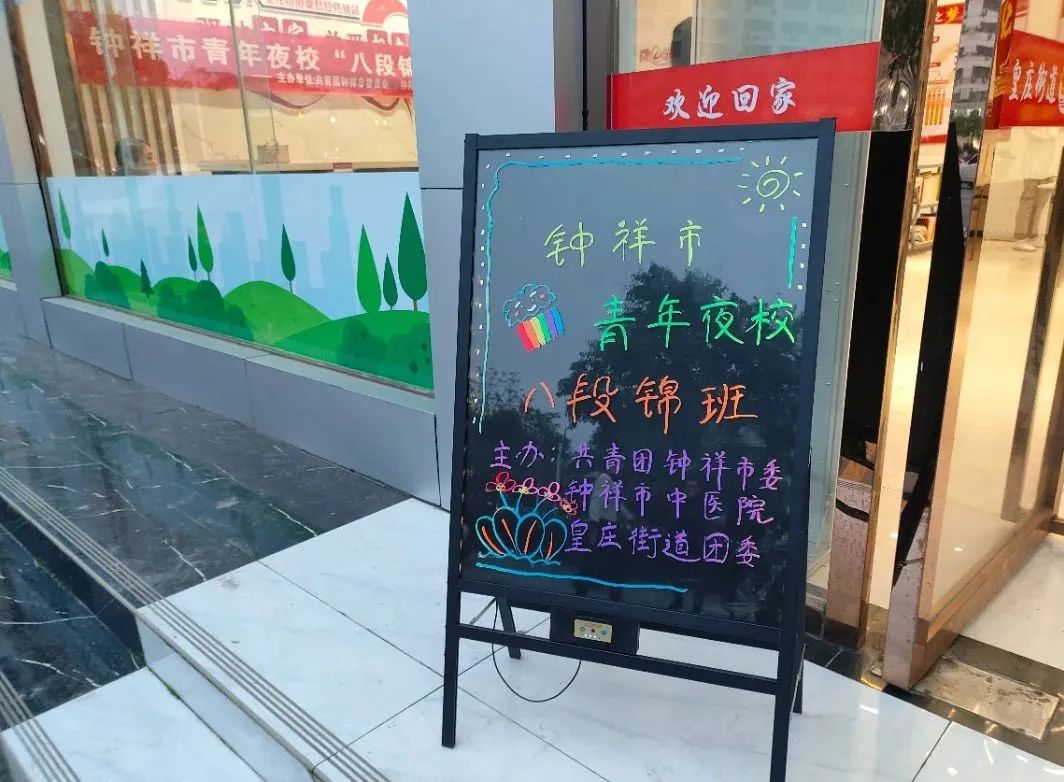 钟祥市青年夜校“八段锦
主办单位:共青团钟祥市委员会
欢迎回家
皇庄街道
钟祥市
青年夜校
八段锦班
主办:共青团钟祥市委
钟祥市中医院
皇庄街道团委